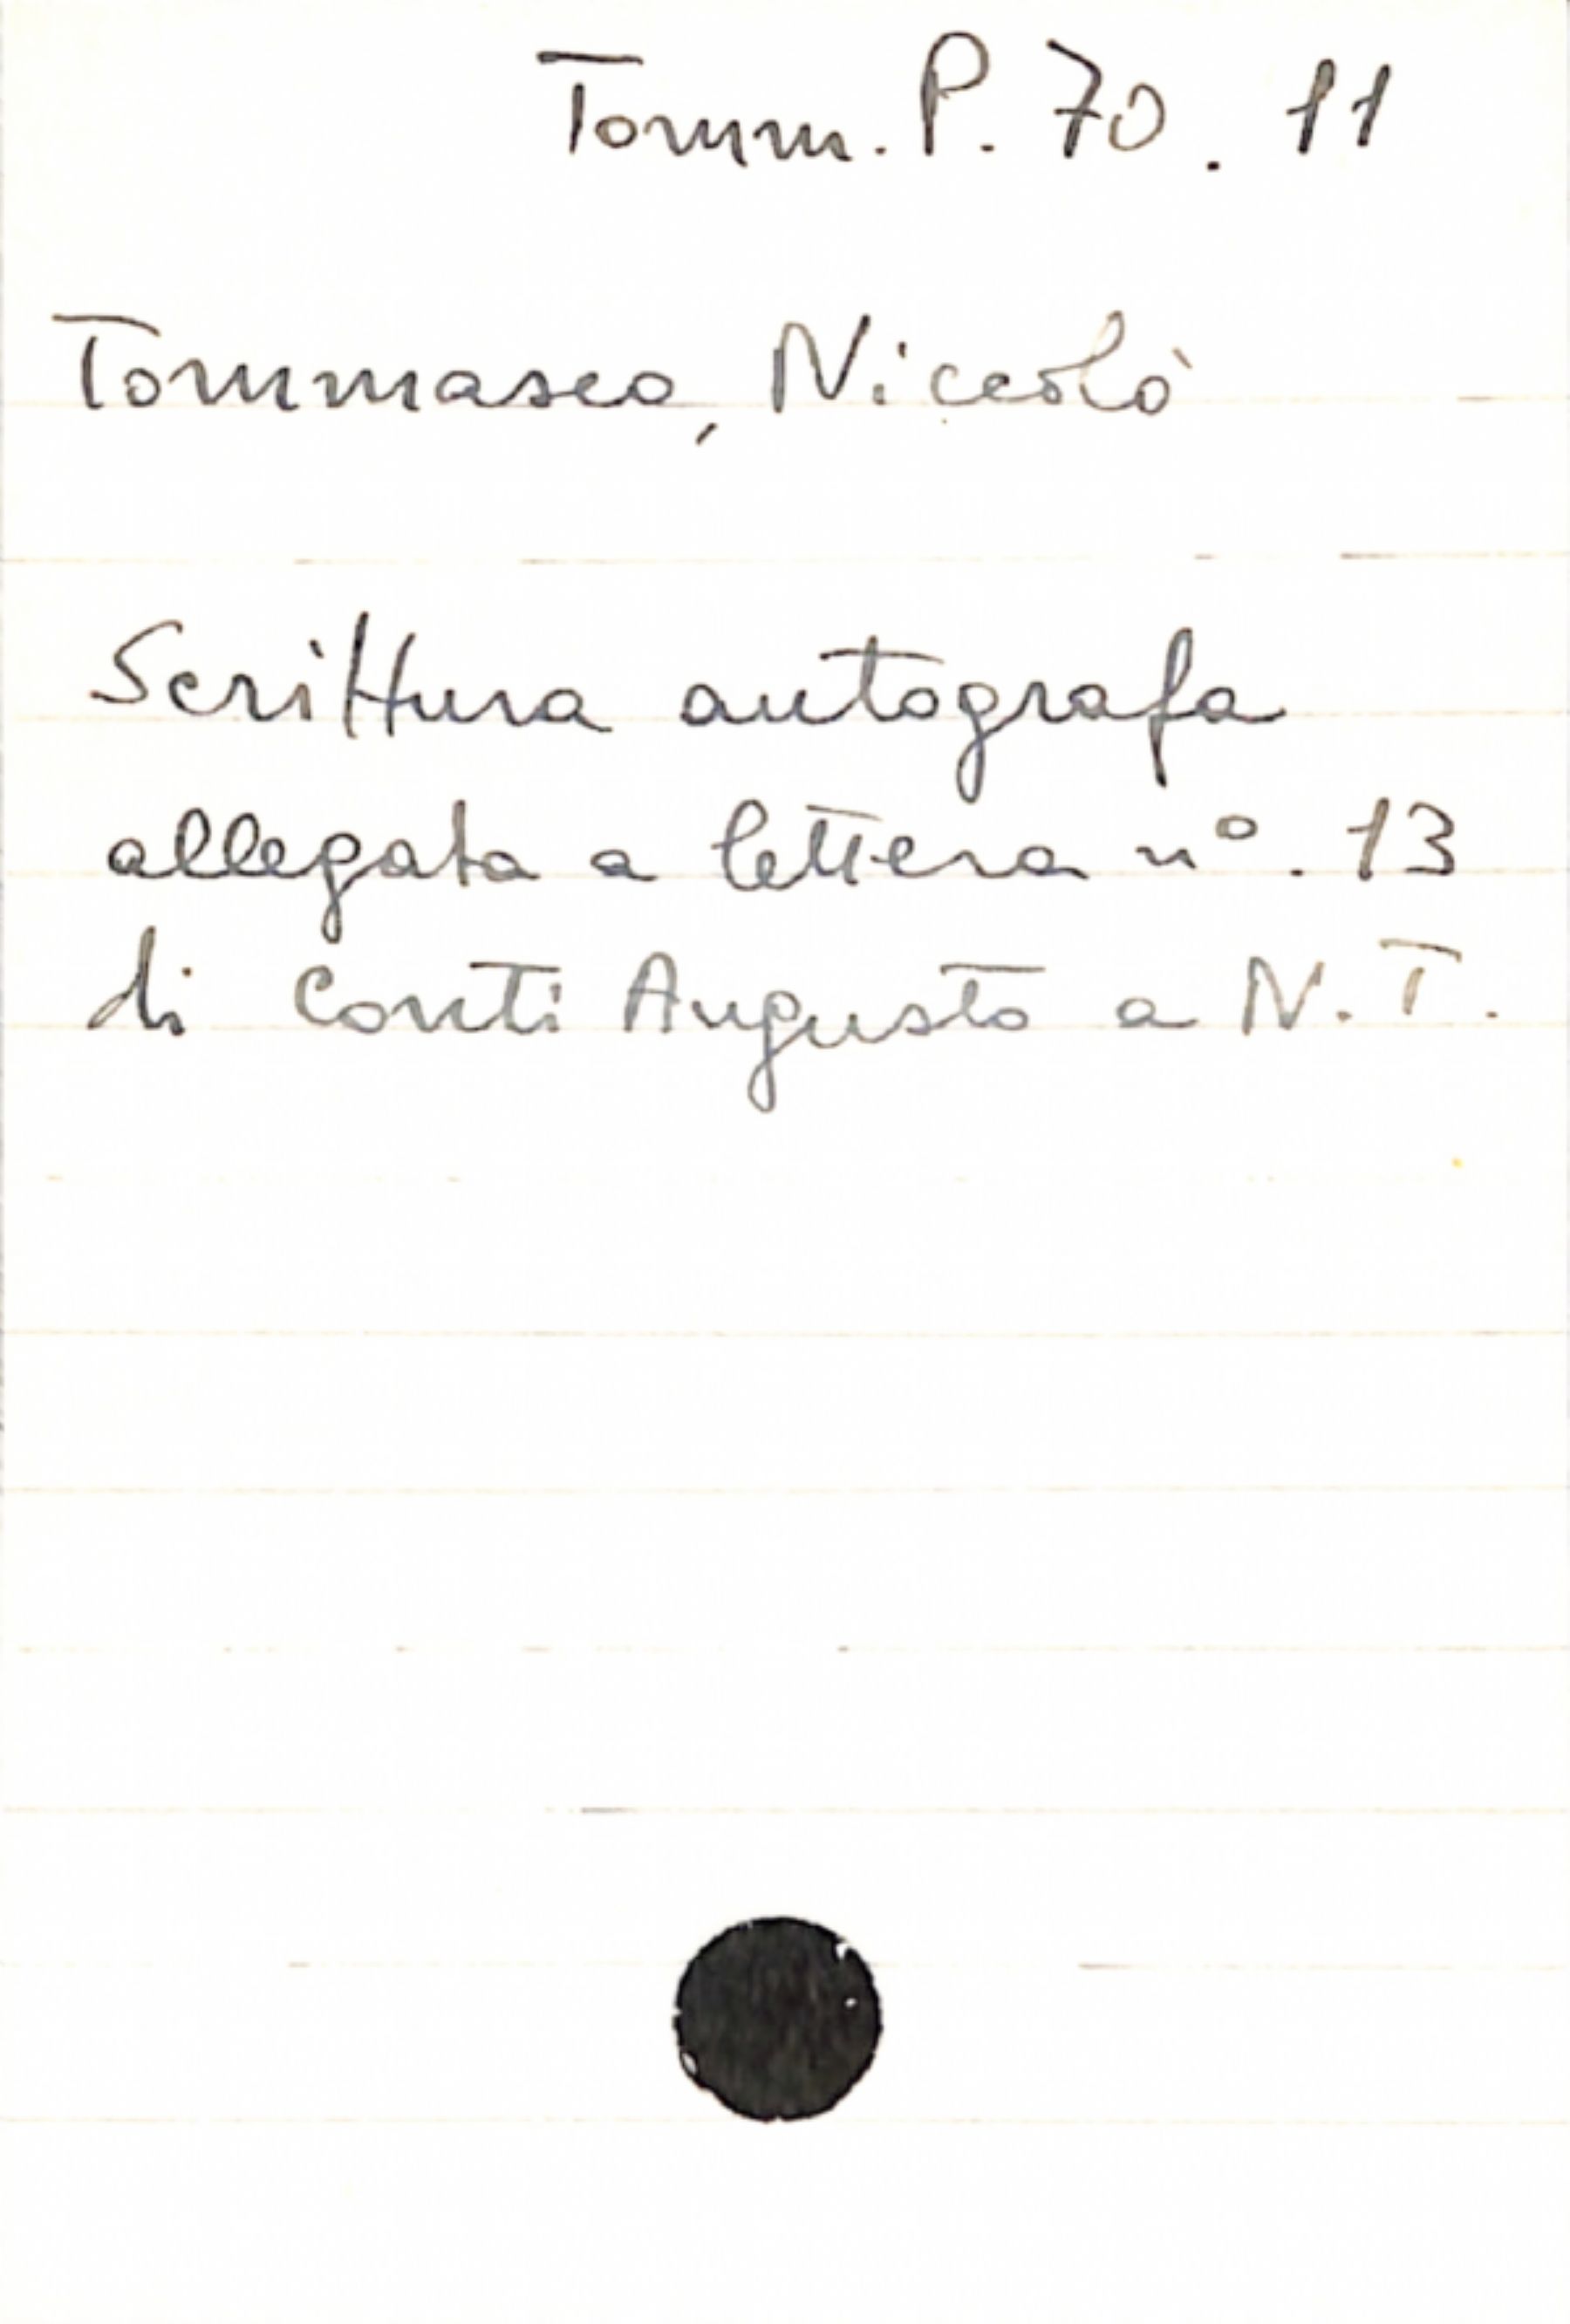 Tomm. P. 70. 11
Tommaseo, Niccolò
Scrittura autografa
allegata a lettera n°. 13
di Conti Augusto a N. T.